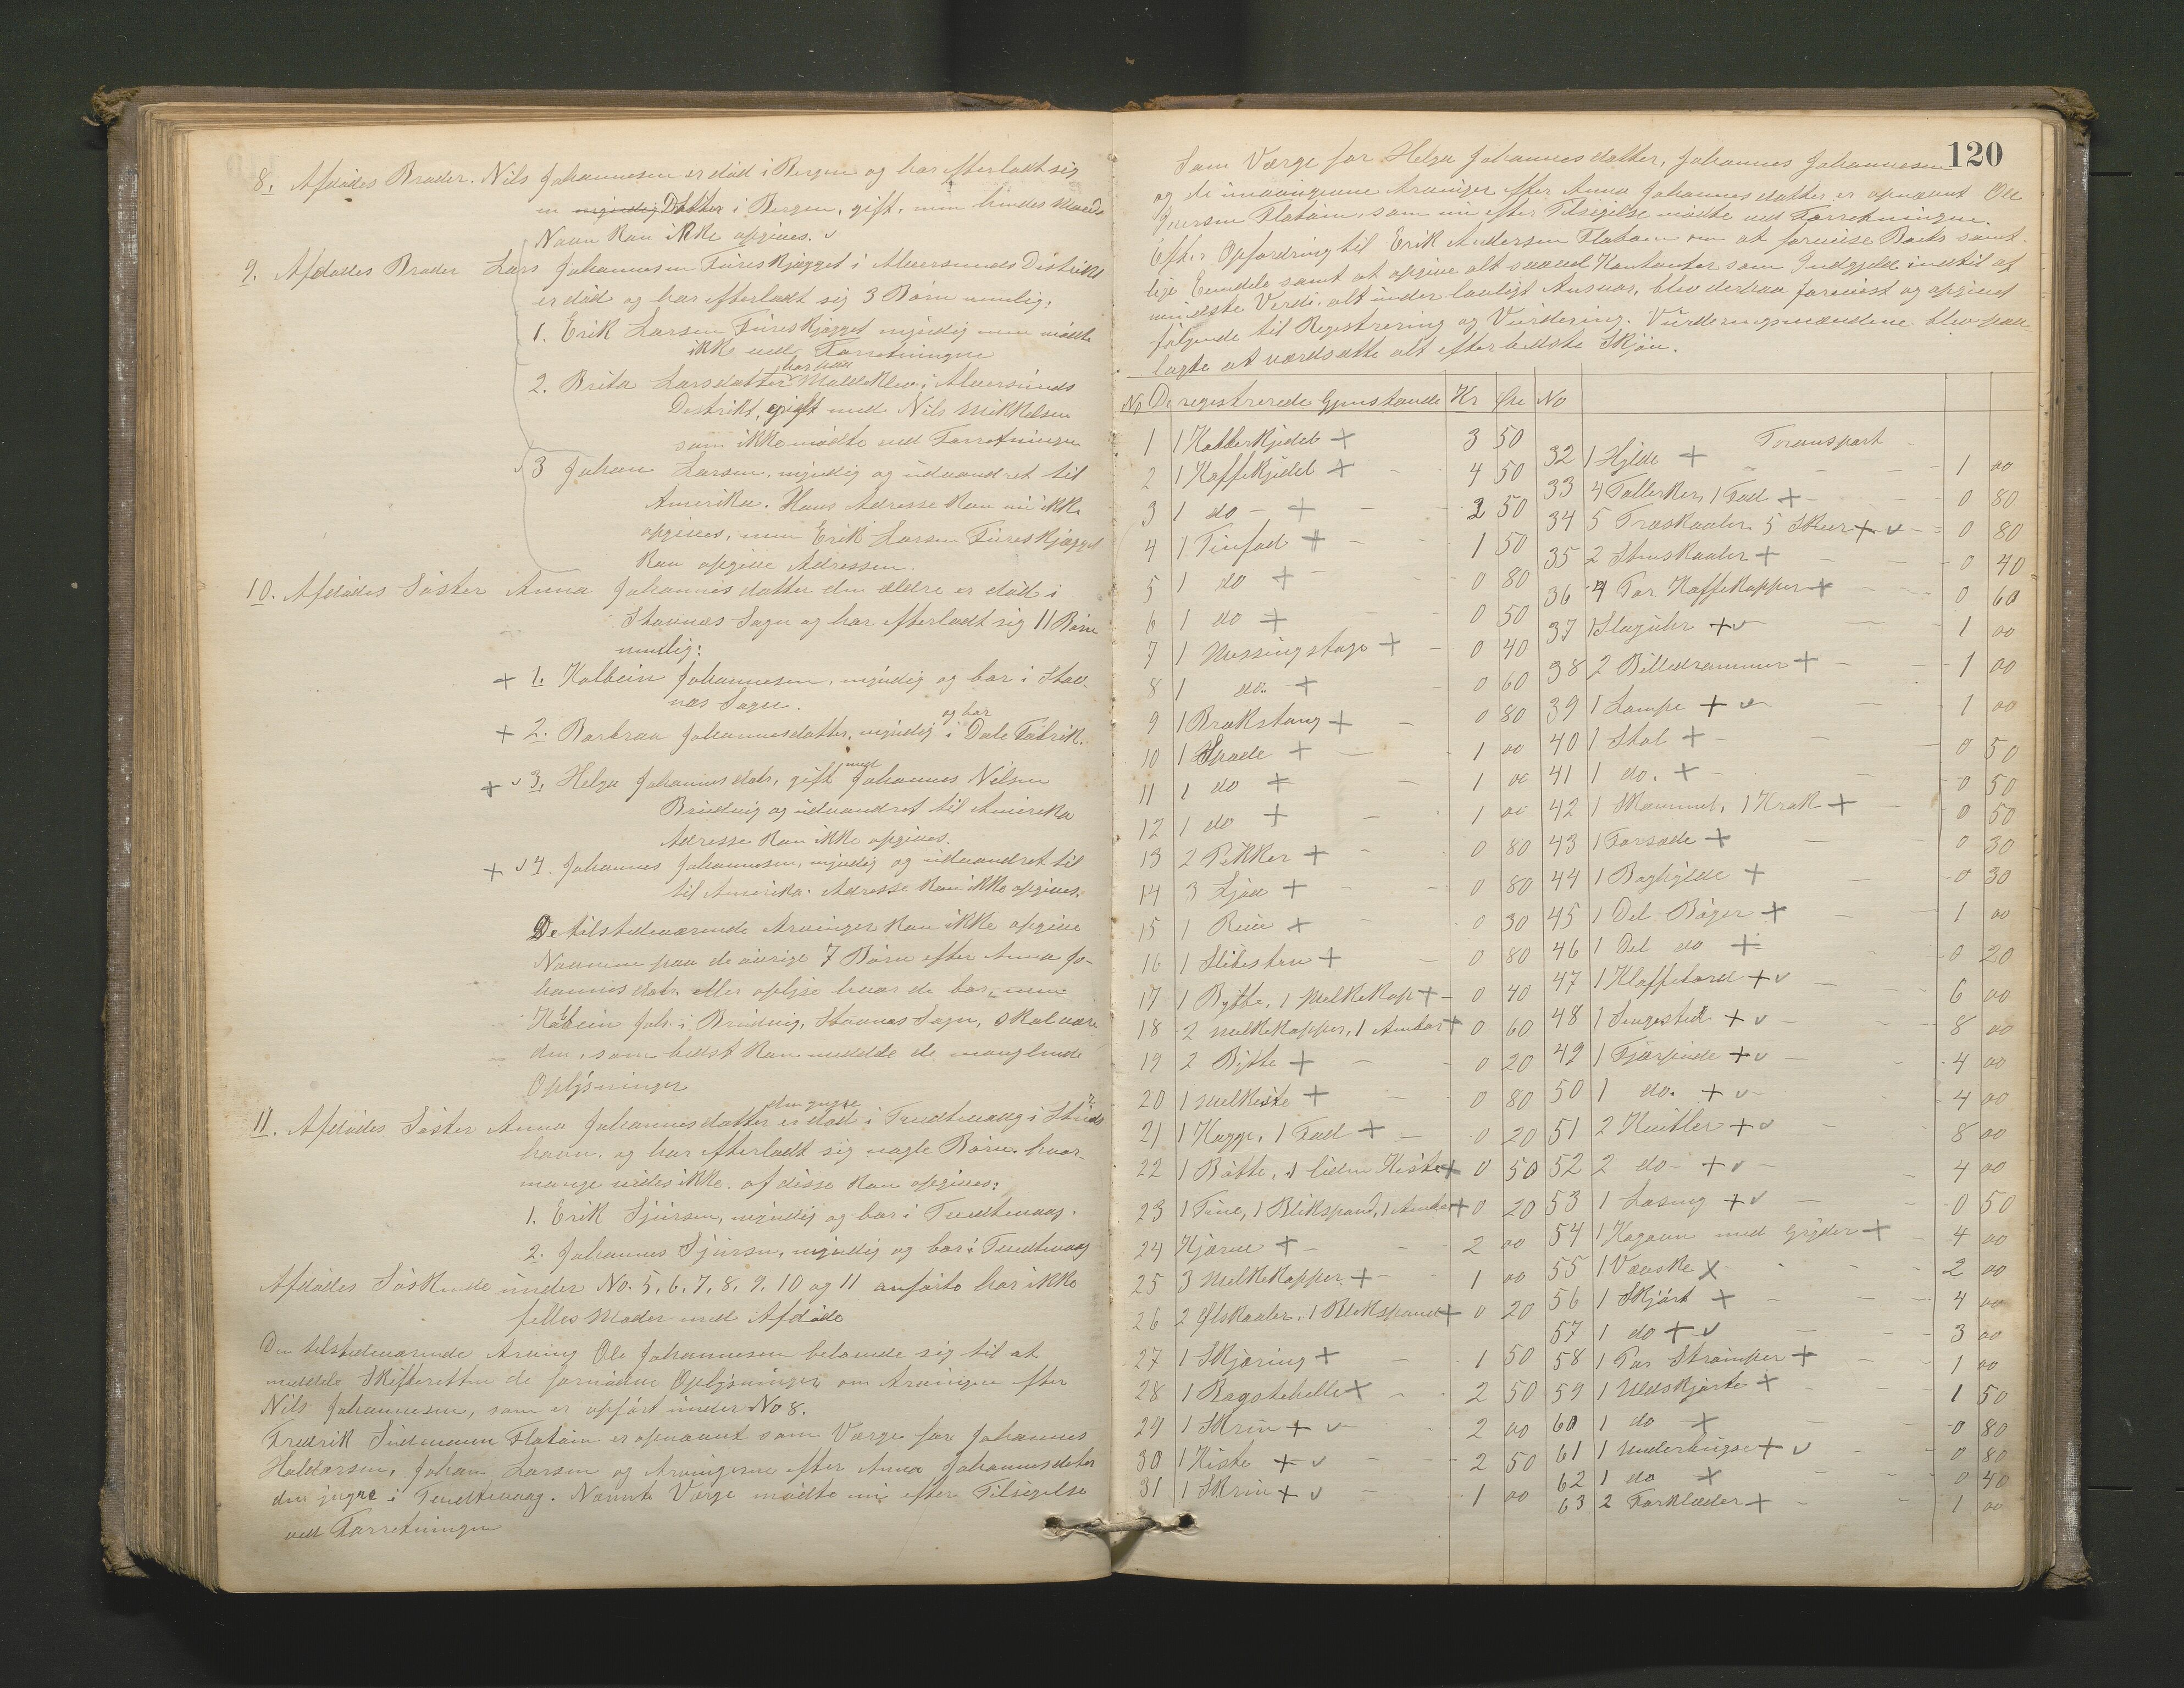 8. Afdødes Broder. Nils Johannesen er död i Bergen og har efterladt sig
en myndig Datter i Bergen, gift, men hendes Mands
Navn kan ikke opgives.
9. Afdødes Broder Lars Johannesen Fureskjægget i Alversunds Distrikt
er död og har efterladt sig 3 Børn nemlig:
1. Erik Larsen Fureskjægget myndig men mödte
ikke ved Forretningen
2. Brita Larsdatter Mælleklev i Alversunds
Destrikt, gift med Nils Mikkelsen
som ikke mödte ved Forretningen
3 Johan Larsen, myndig og udvandret til
Amerika. Hans Adresse kan nu ikke
opgives, men Erik Larsen Fureskjægget
kan opgive Adressen.
10. Afdødes Søster Anna Johannesdatter den ældre er död i
Stavnæs Sogn og har efterladt sig 11 Börn
nemlig:
+ 1. Kolbein Johannesen, myndig og bor i Stav-
næs Sogn.
+ 2. Barbraa Johannesdatter, myndig og bor i Dale Fabrik.
+ 3. Helga Johannesdatr, gift med Johannes Nilsen
Brudvig og udvandret til Amerika
Adresse kan ikke opgives.
+ 4. Johannes Johannesen, myndig og udvandret til
til Amerika. Adresse kan ikke opgives.
De tilstedeværende Arvinger kan ikke opgive
Navnene paa de øvrige 7 Börn efter Anna Jo-
hannesdatr. eller oplyse hvor de bor, men
Kolbein Joh. i Brudvig, Stavnæs Sogn, skal være
den, som bedst kan meddele de manglende
Oplysninger
11. Afdødes Søster Anna Johannesdatter den yngre er död i Tundtevaag i
havn. og har efterladt sig nogle Børn. hvor-
mange vides ikke. af disse kan opgives:
1. Erik Sjursen, myndig og bor i Tundtevaag.
2. Johannes Sjursen, myndig og bor i Tundtevaag
Afdødes Söskende under No. 5, 6, 7, 8, 9, 10 og 11 anførte har ikke
felles Moder med Afdøde
Den tilstedeværende Arving Ole Johannesen belovede sig til at
meddele Skifteretten de fornødne Oplysninger om Arvingen efter
Nils Johannesen, som er opført under No 8.
Fredrik Flatöen er opnævnt som Værge for Johannes
Haldorsen, Johan Larsen og Arvingerne efter Anna Johannesdater
den yngre i Tundtevaag. Nævnte Værge mødte nu efter Tilsigelse
ved Forretningen
120
Som Værge for Helga Johannesdatter, Johannes Johannesen
og de Arvinger efter Anna Johannesdatter er opnævnt Ole
Iversen Flatöen, som nu efter Tilsigelse mødte ved Forretningen.
Efter Opfordring til Erik Andersen Flatöen om at forevise Boets samt-
lige Eiendele samt at opgive alt saavel Kontanter som Indgjeld indtil af
mindste Verdi, alt under lovligt Ansvar, blev derpaa forevist og opgivet
følgende til Registrering og Vurdering. Vurderingsmændene blev paa-
lagte at værdsætte alt efter bedste Skjøn.
No De registrerede Gjenstande Kr Øre No
Transport
1 1 Kobberkjedel + 3 50
2 1 Kaffekjedel + 4 50
3 1 do - + 2 50
4 1 Tinfad + 1 50
5 1 do + 0 80
6 1 do + 0 50
7 1 Messingstage + 0 40
8 1 do. + 0 60
9 1 Brækstang + 0 80
10 1 Spade + 1 00
11 1 do + 1 00
12 1 do + 1 00
13 2 Pikker + 0 80
14 3 Ljaa + 0 80
15 1 + 0 30
16 1 Slibesten + 0 80
17 1 Bytte, 1 Melkekop + 0 40
18 2 Melkekopper, 1 Ambar + 0 60
19 2 Bytte + 0 20
20 1 Melkiste + 0 80
21 1 Kagge, 1 Fad + 0 20
22 1 Bøtte, 1 liden Kiste + 0 50
23 1 Tine, 1 Blikspand, 1 Ambar + 0 20
24 Kjærne + 2 00
25 3 Melkekopper + 1 00
26 2 Ølskaaler, 1 Blekspand + 0 20
27 1 Skjæring + 1 50
28 1 Bagstehelle + 2 50
29 1 Skrin + 2 00
30 1 Kiste + 2 50
31 1 Skrin + 1 00
32 1 Hylde + 1 00
33 4 Tallerker, 1 Fad + 0 80
34 5 Træskaaler 5 Skeer + 0 80
35 2 Stenskaaler + 0 40
36 4 Par Kaffekopper + 0 60
37 1 Slagur + 1 00
38 2 Billedrammer + 1 00
39 1 Lampe + 1 00
40 1 Stol + 0 50
41 1 do. + 0 50
42 1 Skammel, 1 Krak + 0 50
43 1 Forsæde + 0 30
44 1 Boghylde + 0 30
45 1 Del Bøger + 1 00
46 1 Del do + 0 20
47 1 Klaffebord + 6 00
48 1 Sengested + 8 00
49 1 Fjærpude + 4 00
50 1 do. + 4 00
51 2 Kvitler + 8 00
52 2 do + 4 00
53 1 + 0 50
54 1 Kogovn med Gryder + 4 00
55 1 Væske + 2 00
56 1 Skjørt + 4 00
57 1 do + 3 00
58 1 Par Strømper + 1 00
59 1 Uldskjorte + 1 50
60 1 do + 0 80
61 1 Underbuxe + 0 80
62 1 do + 0 40
63 2 Forklæder + 1 00